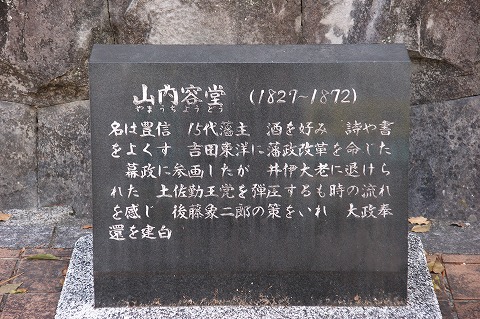 山内容堂 (1827~1872)
やまうちようどう
名は豊信 15代藩主 酒を好み 詩や書
をよくす 吉田東洋に藩政改革を命じた
幕政に参画したが 井伊大老に退けら
れた 土佐勤王党を弾圧するも時の流れ
を感じ 後藤象二郎の策をいれ 大政奉
還を建白